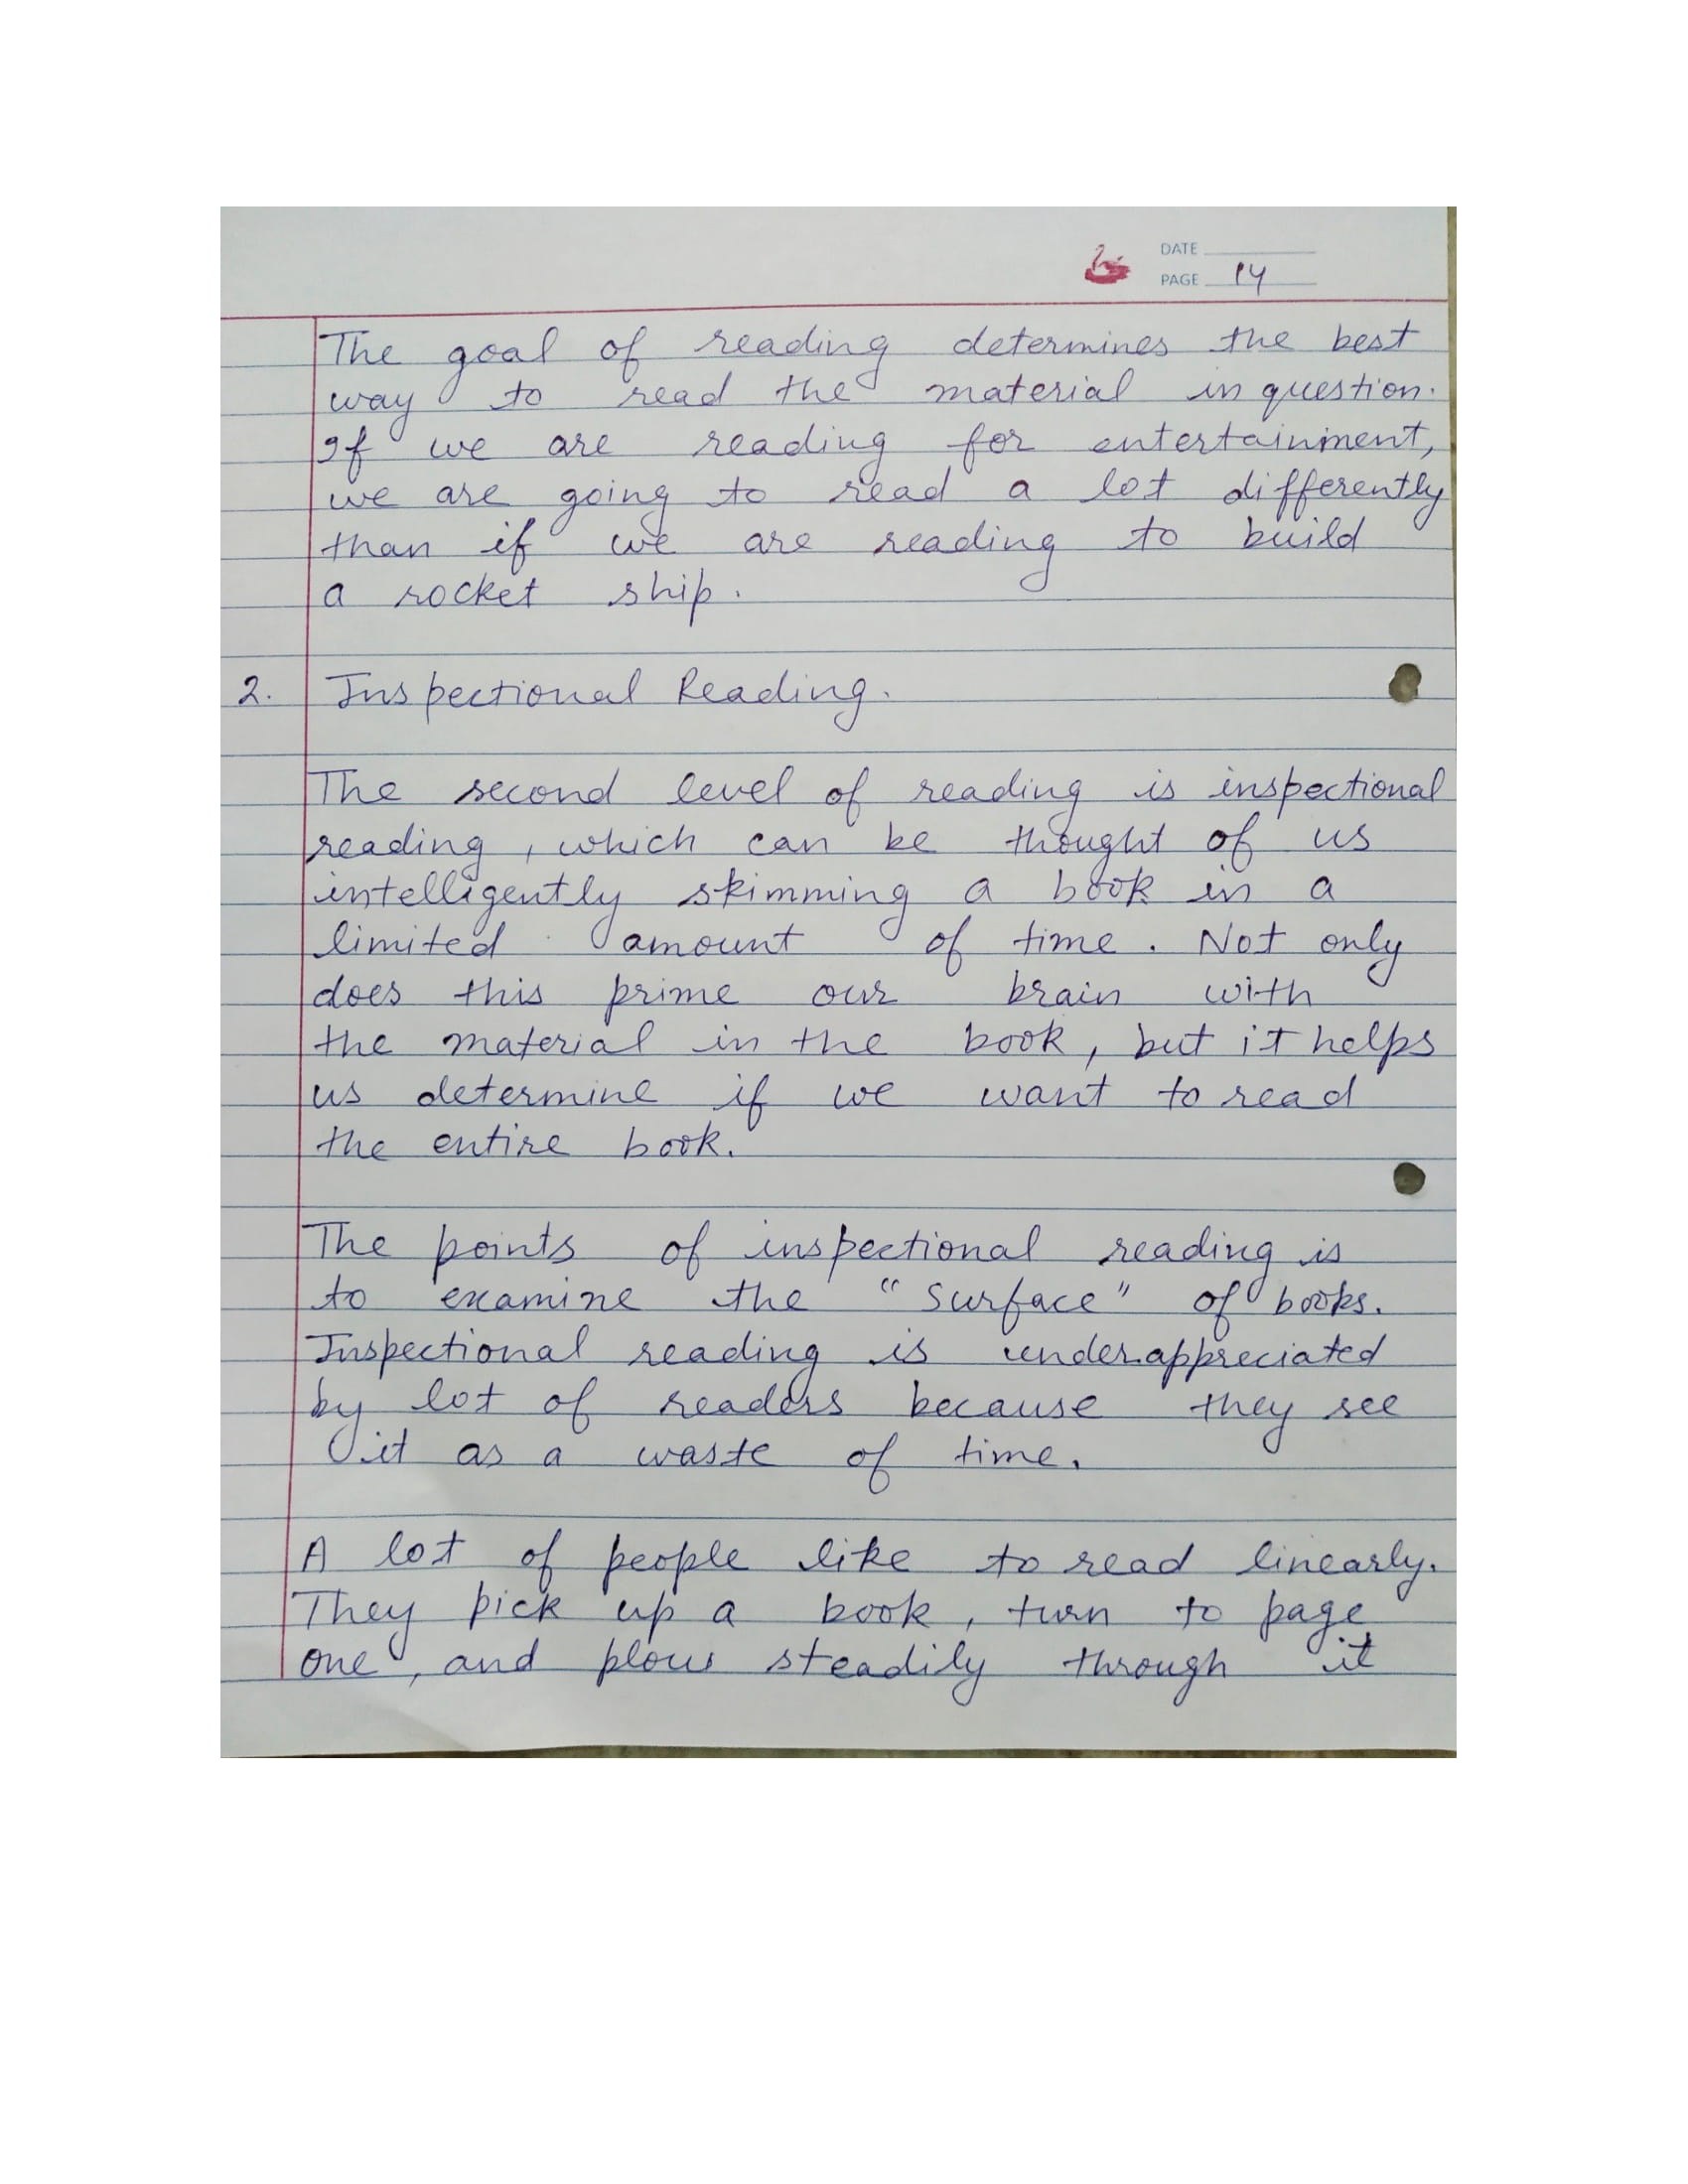 DATE
PAGE 14
The goal of reading determines the best
way to read the material in question.
If we are reading for entertainment,
we are going to read a lot differently
than if we are reading to build
a rocket ship.
2. Inspectional Reading.
The second level of reading is inspectional
reading, which can be thought of us
intelligently skimming a book in a
limited amount of time. Not only
does this prime our brain with
the material in the book, but it helps
us determine if we want to read
the entire book.
The points of inspectional reading is
to examine the "surface" of books.
Inspectional reading is underappreciated
by lot of readers because they see
it as a waste of time.
A lot of people like to read linearly.
They pick up a book, turn to page
one, and plow steadily through it